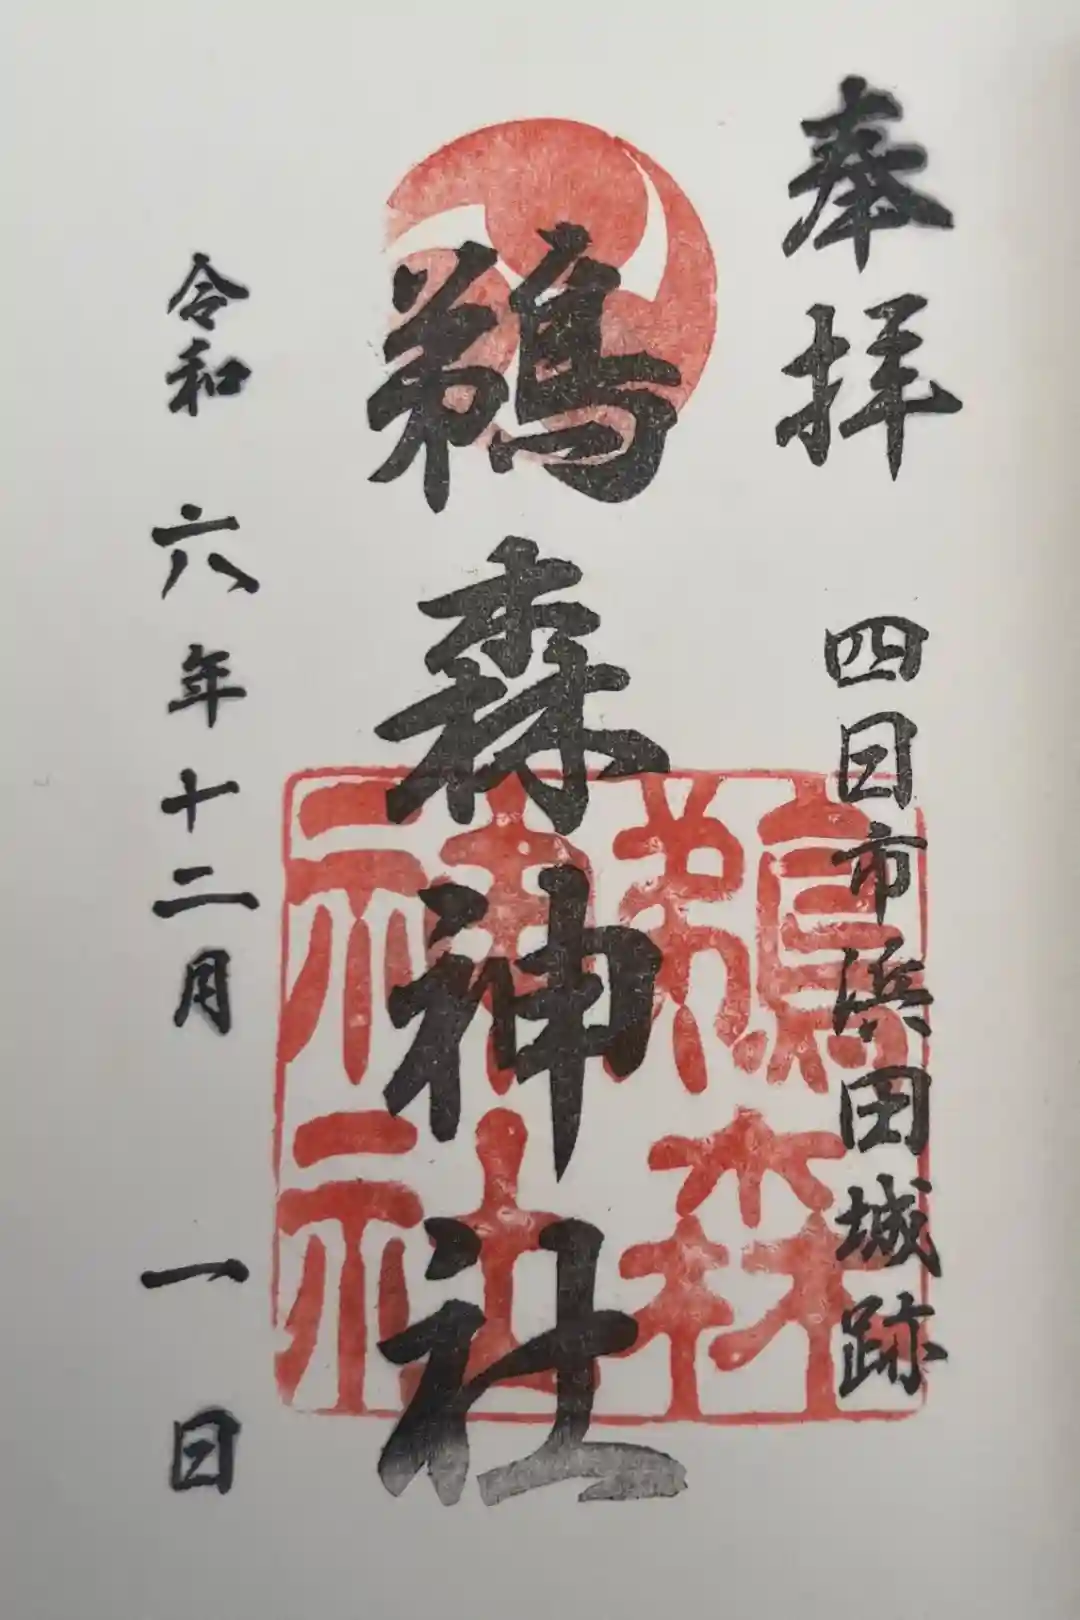 奉拝 四日市浜田城跡
鵜森神社
鵜森
神社
令和六年十二月一日